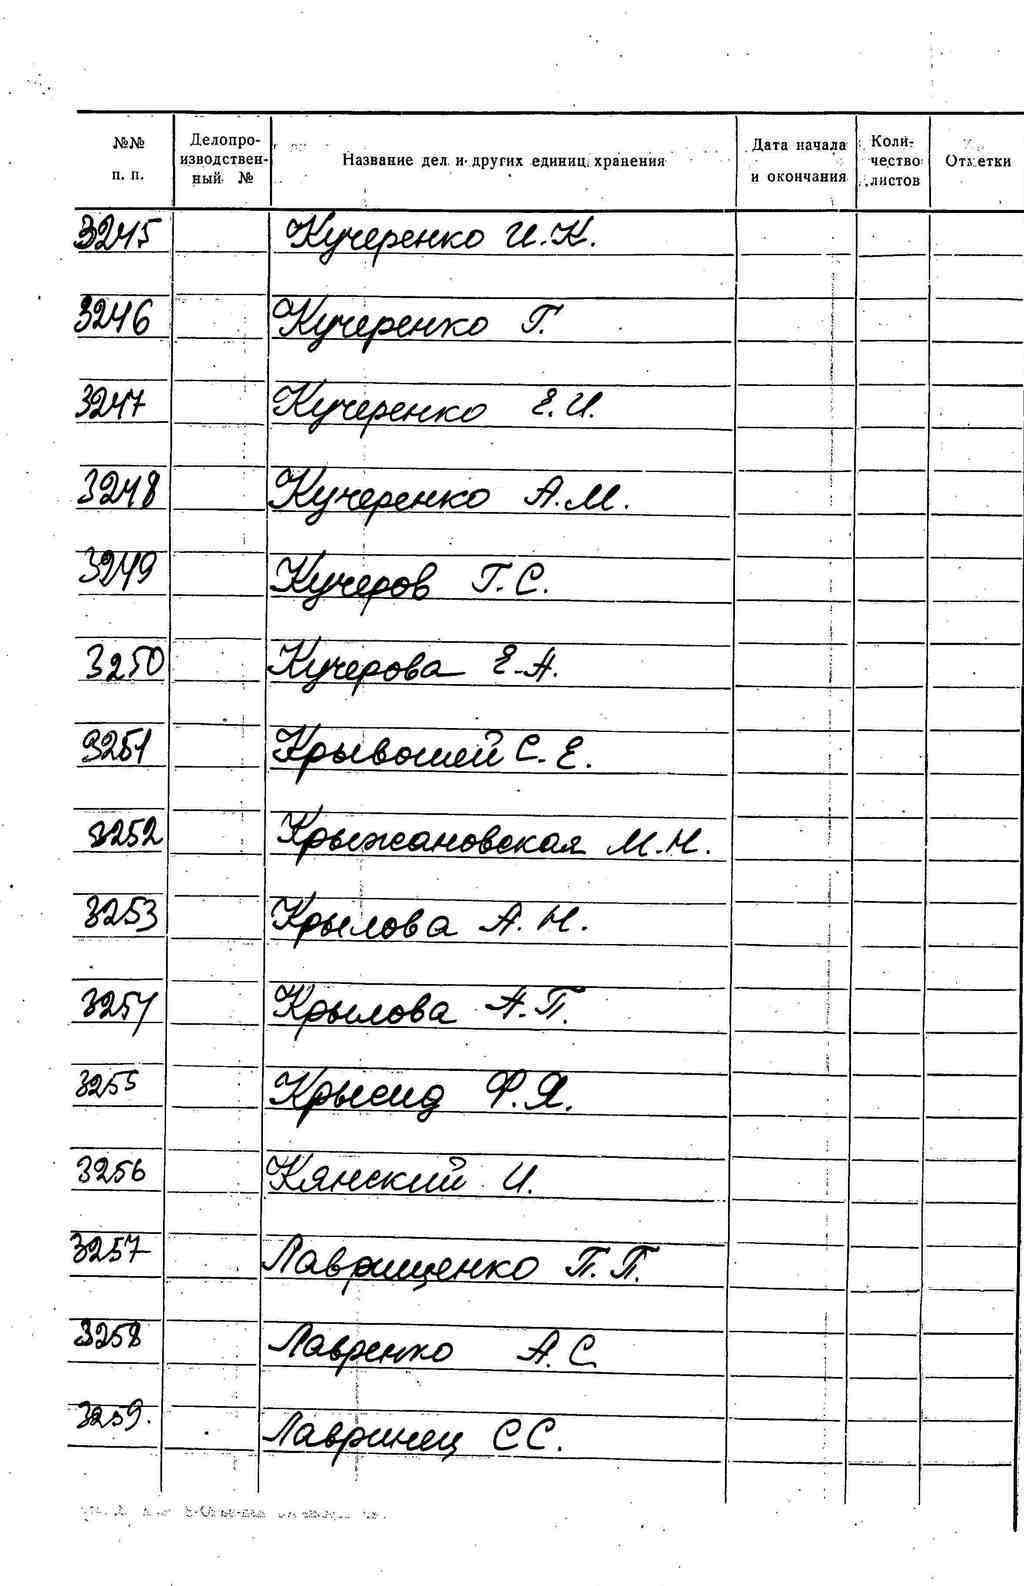 №№ п. п. Делопроизводственный № Название дел и других единиц хранения Дата начала и окончания Количество листов Отметки
3245 Кучеренко И.К.
3246 Кучеренко Г.
3247 Кучеренко Е.И.
3248 Кучеренко А.М.
3249 Кучеров Г.С.
3250 Кучерова Е.А.
3251 Крывошей С.Е.
3252 Крыжановская М.Н.
3253 Крылова А.Н.
3254 Крылова А.П.
3255 Крысид Ф.Я.
3256 Кянский И.
3257 Лаврищенко П.П.
3258 Лавренко А.С.
3259. Лавринец С.С.